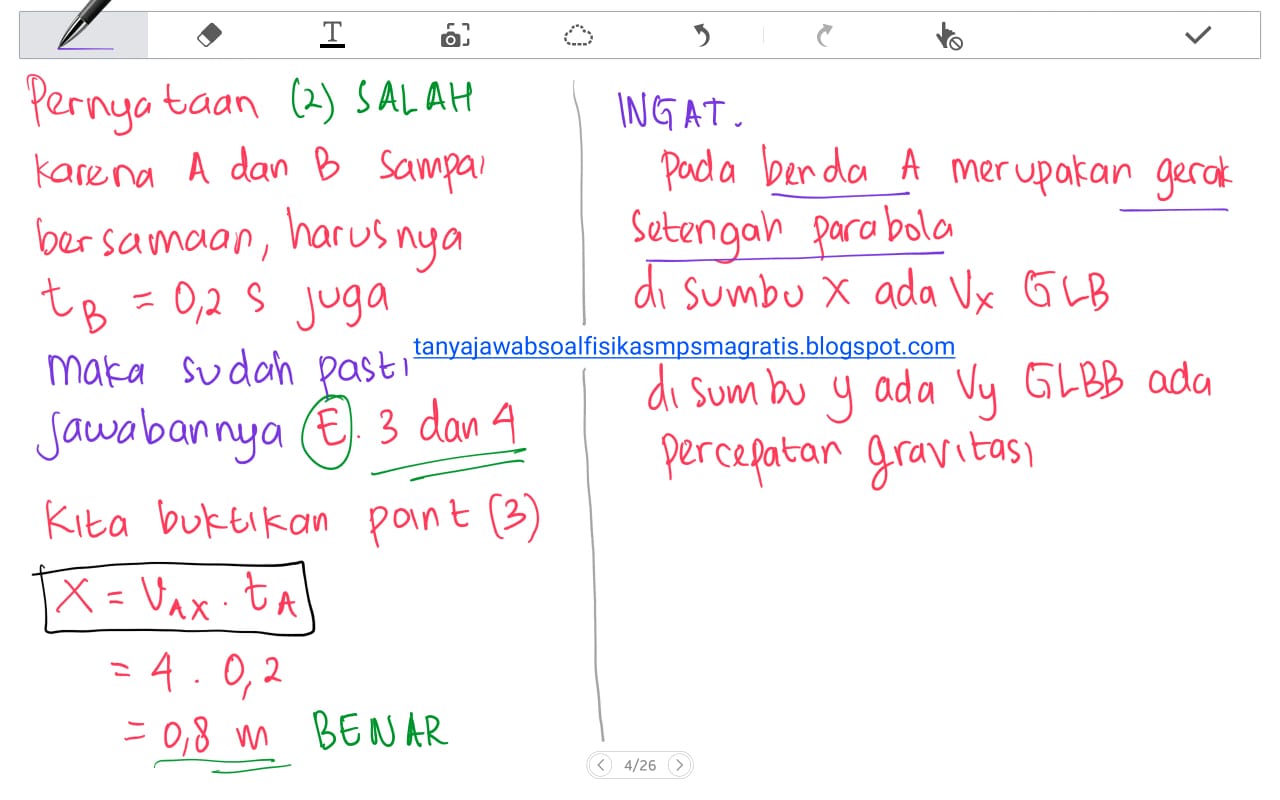 T
Pernyataan (2) SALAH
karena A dan B sampai
bersamaan, harusnya
t_B = 0,2 s juga
maka sudah pasti
jawabannya E. 3 dan 4
Kita buktikan point (3)
X = V_AX . t_A
= 4 . 0,2
= 0,8 m BENAR
INGAT.
Pada benda A merupakan gerak
setengah parabola
di sumbu X ada V_X GLB
tanyajawabsoalfisikasmpsmagratis.blogspot.com
di sumbu y ada V_y GLBB ada
percepatan gravitasi
4/26